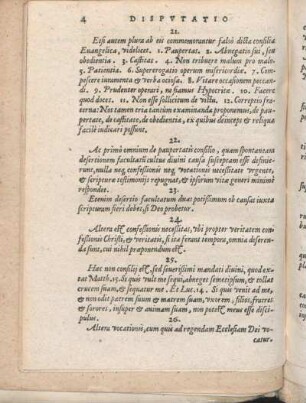 4 DISPVTATIO
21.
Etsi autem plura ab eis commemorantur falsò dicta consilia
Euangelica, videlicet. 1. Paupertas. 2. Abnegatio sui, seu
obedientia. 3. Castitas. 4. Non tribuere malum pro malo.
5. Patientia. 6. Supererogatio operum misericordiæ. 7. Com-
ponere iuramenta & verba ociosa. 8. Vitare occasionem peccandi.
9. Prudenter operari, ne fiamus Hypocritæ. 10. Facere
quod docet. 11. Non esse sollicitum de victu. 12. Correptio fra-
terna: Nos tamen tria tantùm examinanda proponemus, de pau-
pertate, de castitate, de obedientia, ex quibus deinceps & reliqua
facilè indicari possunt.
22.
Ac primò omnium de paupertatis consilio, quam spontaneam
desertionem facultatũ cultus diuini causa susceptam esse definie-
runt, nulla neq; confessionis neq; vocationis necessitate vrgente,
& scripturæ testimonijs repugnat, & ipsorum vitæ generi minimè
respondet.
23.
Etenim desertio facultatum duas potissimum ob causas iuxta
scripturam fieri debet, si Deo probetur.
24.
Altera est confessionis necessitas, vbi propter veritatem con-
fessionis Christi, & veritatis, si ita ferant tempora, omnia deseren-
da sunt, cui nihil præponendum est.
25.
Hoc non consilij est, sed seuerissimi mandati diuini, quod ex-
tat Matth. 15. Si quis vult me sequi, abneget semetipsum, & tollat
crucem suam, & sequatur me. Et Luc. 14. Si quis venit ad me,
& non odit patrem suum & matrem suam, vxorem, filios, fratres
& sorores, insuper & animam suam, non potest meus esse disci-
pulus.
26.
Altera vocationis, cum quis ad regendam Ecclesiam Dei vo-
catur.